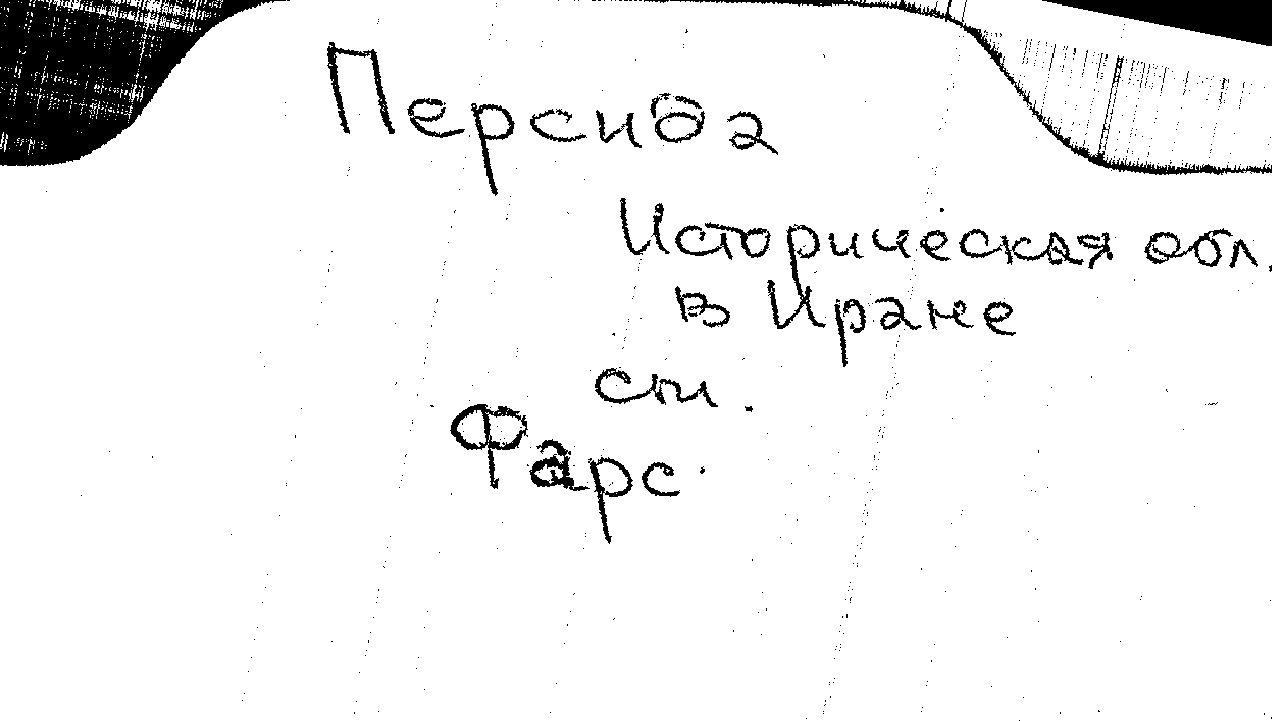 Персида
Историческая обл.
в Иране
см.
Фарс.